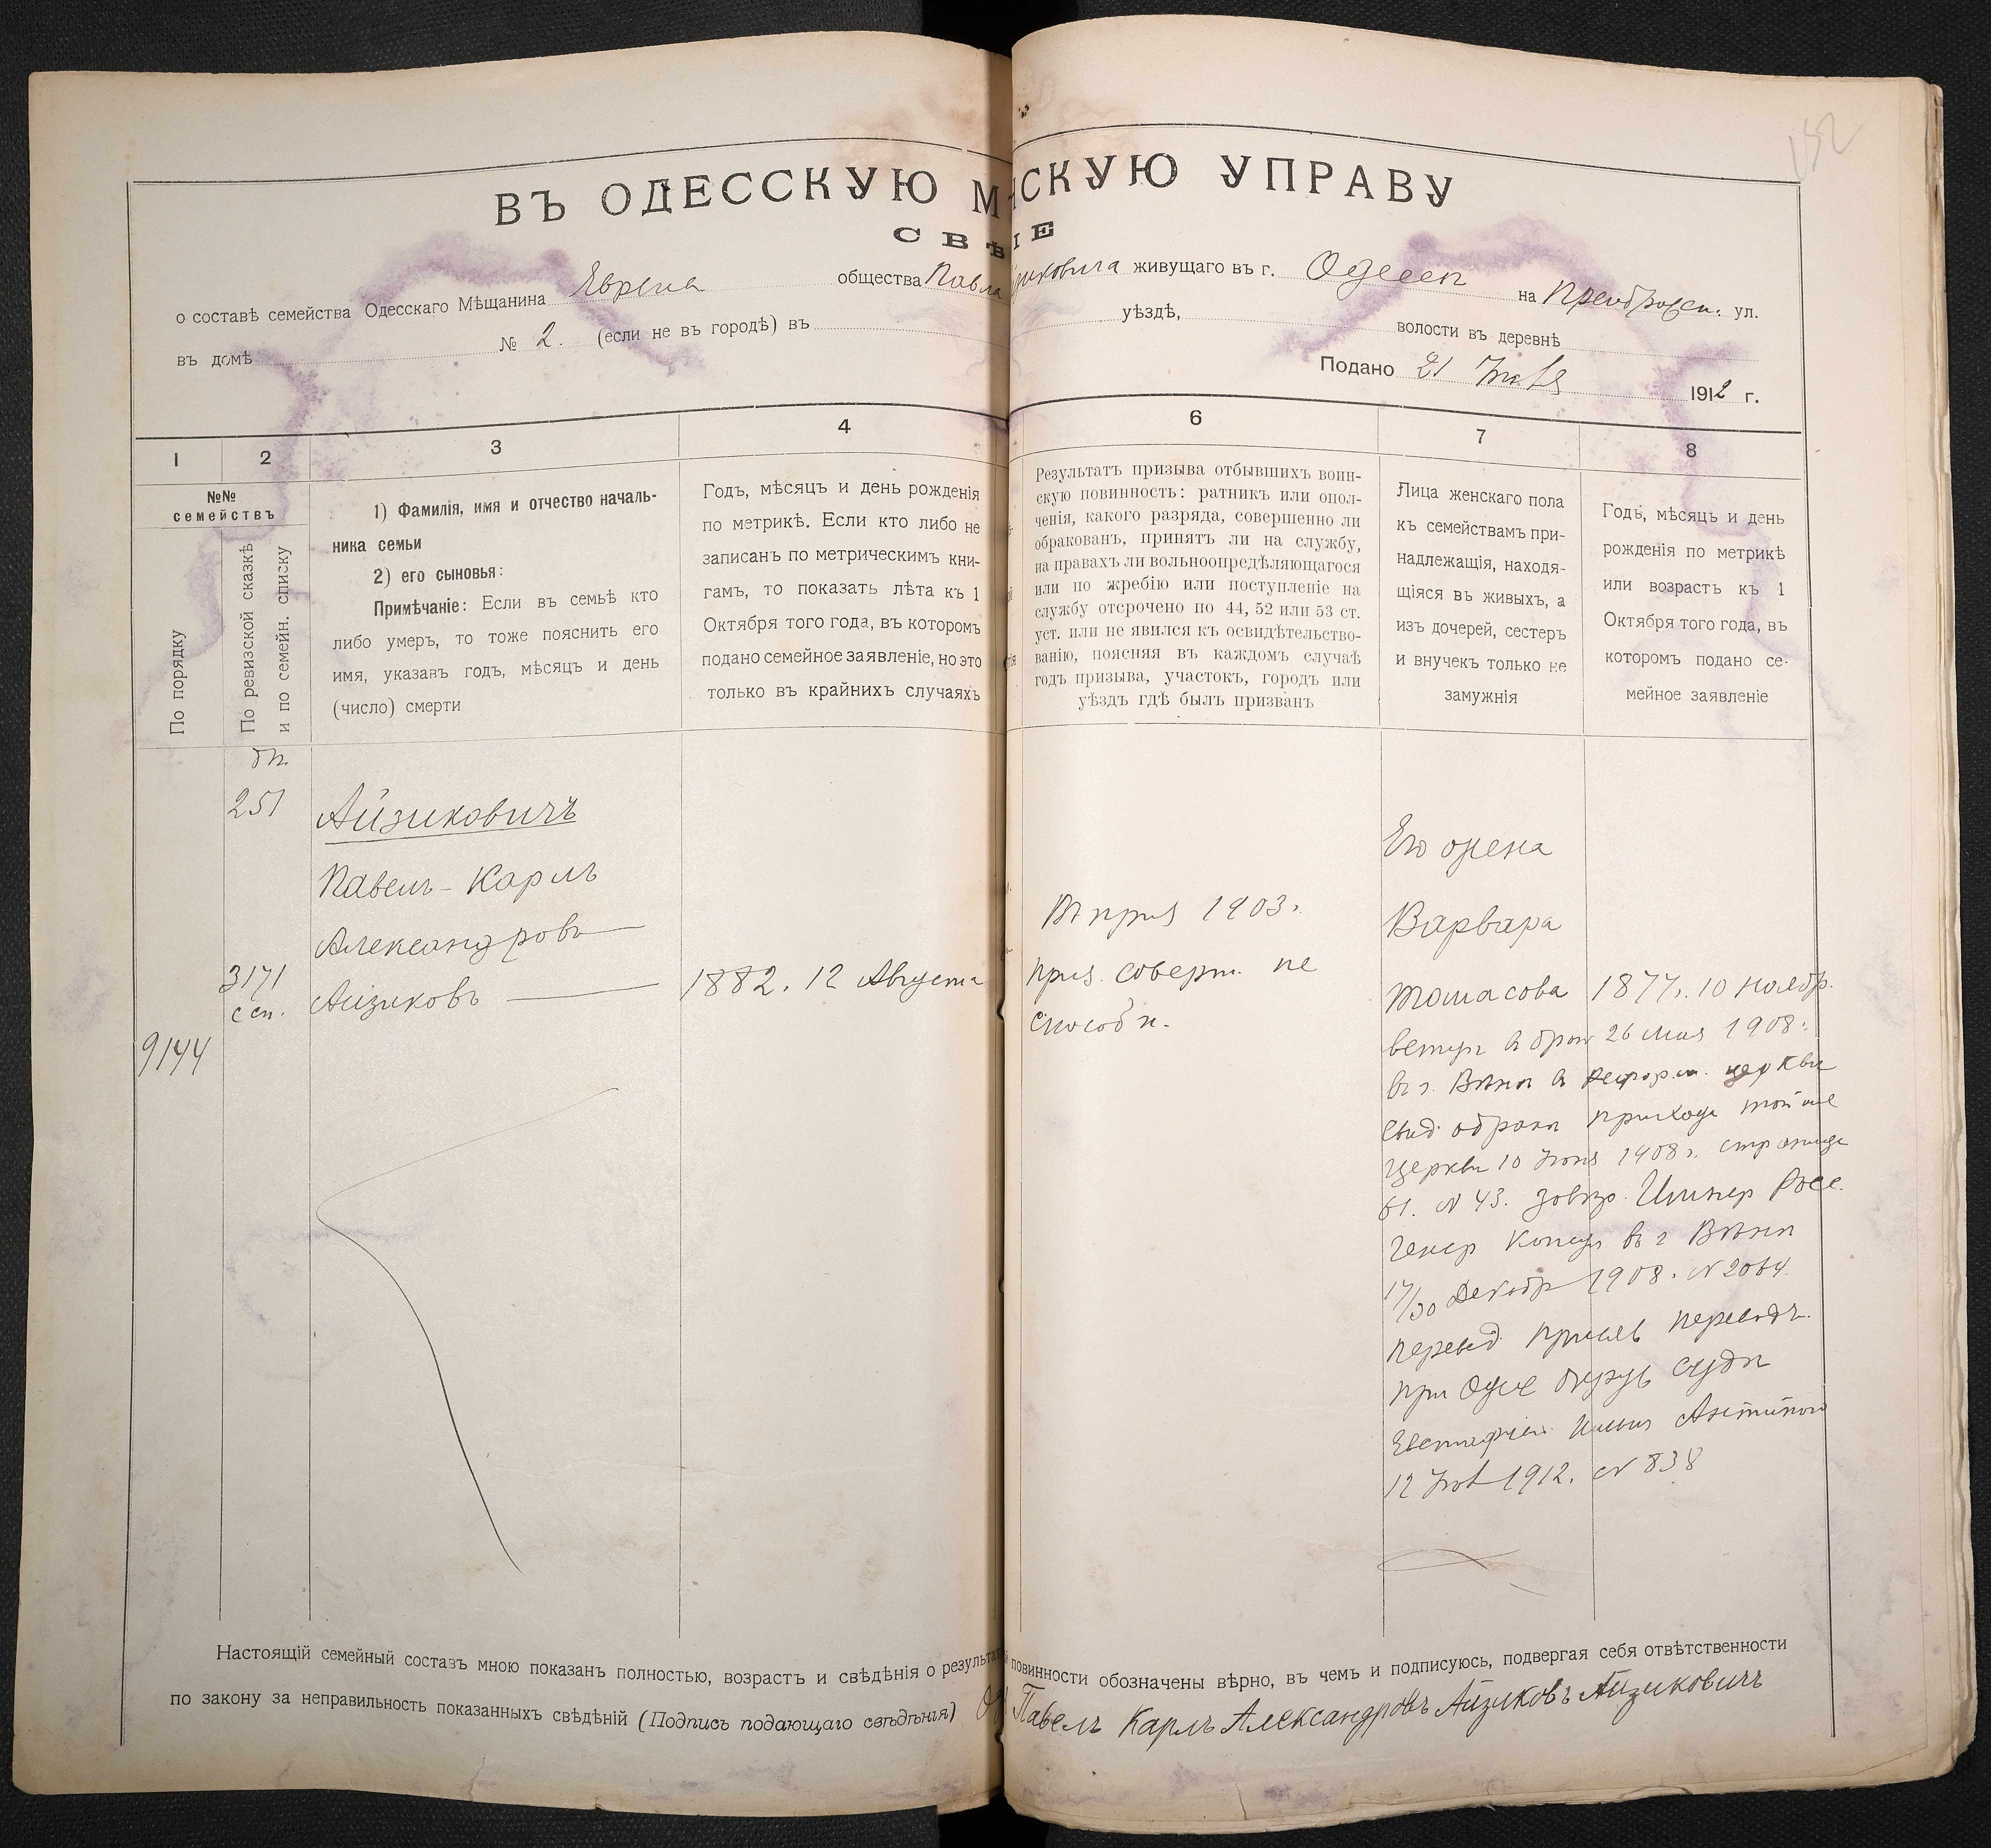 152
ВЪ ОДЕССКУЮ М НСКУЮ УПРАВУ
СВѢ ІЕ
о составѣ семейства Одесскаго Мѣщанина Еврея общества Павла зиковича живущаго въ г. Одессѣ на Преображен. ул.
въ домѣ № 2. (если не въ городѣ) въ уѣздѣ, волости въ деревнѣ
Подано 21 1912 г.
1 2 3 4 6 7 8
№№
семействъ
По порядку
По ревизской сказкѣ
и по семейн. списку
1) Фамилія, имя и отчество началь-
ника семьи
2) его сыновья:
Примѣчаніе: Если въ семьѣ кто
либо умеръ, то тоже пояснить его
имя, указавъ годъ, мѣсяцъ и день
(число) смерти
Годъ, мѣсяцъ и день рожденія
по метрикѣ. Если кто либо не
записанъ по метрическимъ кни-
гамъ, то показать лѣта къ 1
Октября того года, въ которомъ
подано семейное заявленіе, но это
только въ крайнихъ случаяхъ
Результатъ призыва отбывшихъ воин-
скую повинность: ратникъ или опол-
ченія, какого разряда, совершенно ли
обракованъ, принятъ ли на службу,
на правахъ ли вольноопредѣляющагося
или по жребію или поступленіе на
службу отсрочено по 44, 52 или 53 ст.
уст. или не явился къ освидѣтельство-
ванію, поясняя въ каждомъ случаѣ
годъ призыва, участокъ, городъ или
уѣздъ гдѣ былъ призванъ
Лица женскаго пола
къ семействамъ при-
надлежащія, находя-
щіяся въ живыхъ, а
изъ дочерей, сестеръ
и внучекъ только не
замужнія
Годъ, мѣсяцъ и день
рожденія по метрикѣ
или возрастъ къ 1
Октября того года, въ
которомъ подано се-
мейное заявленіе
251
3171
с сп.
9144
Айзиковичъ
Павелъ-Карлъ
Александровъ
Айзиковъ
1882. 12 Августа
1903.
приз. соверш. не
способн.
Его жена
Варвара
Томасова 1877. 10 Ноябр.
вступ. в брак 26 Мая 1908.
въ г. Вѣнѣ в реформ. церкви
свид. о бракѣ прихода той же
церкви 10 Іюня 1908 г. страница
61. N 43. Импер Росс.
Генер Консул въ г Вѣнѣ
17/30 Декабр 1908. N 2064.
перевед. присяж переводч.
при Одес Окруж Судѣ
12 1912. N 838
Настоящій семейный составъ мною показанъ полностью, возрастъ и свѣдѣнія о результат повинности обозначены вѣрно, въ чемъ и подписуюсь, подвергая себя отвѣтственности
по закону за неправильность показанныхъ свѣдѣній (Подпись подающаго свѣдѣнія) Павелъ Карлъ Александровъ Айзиковъ Айзиковичъ